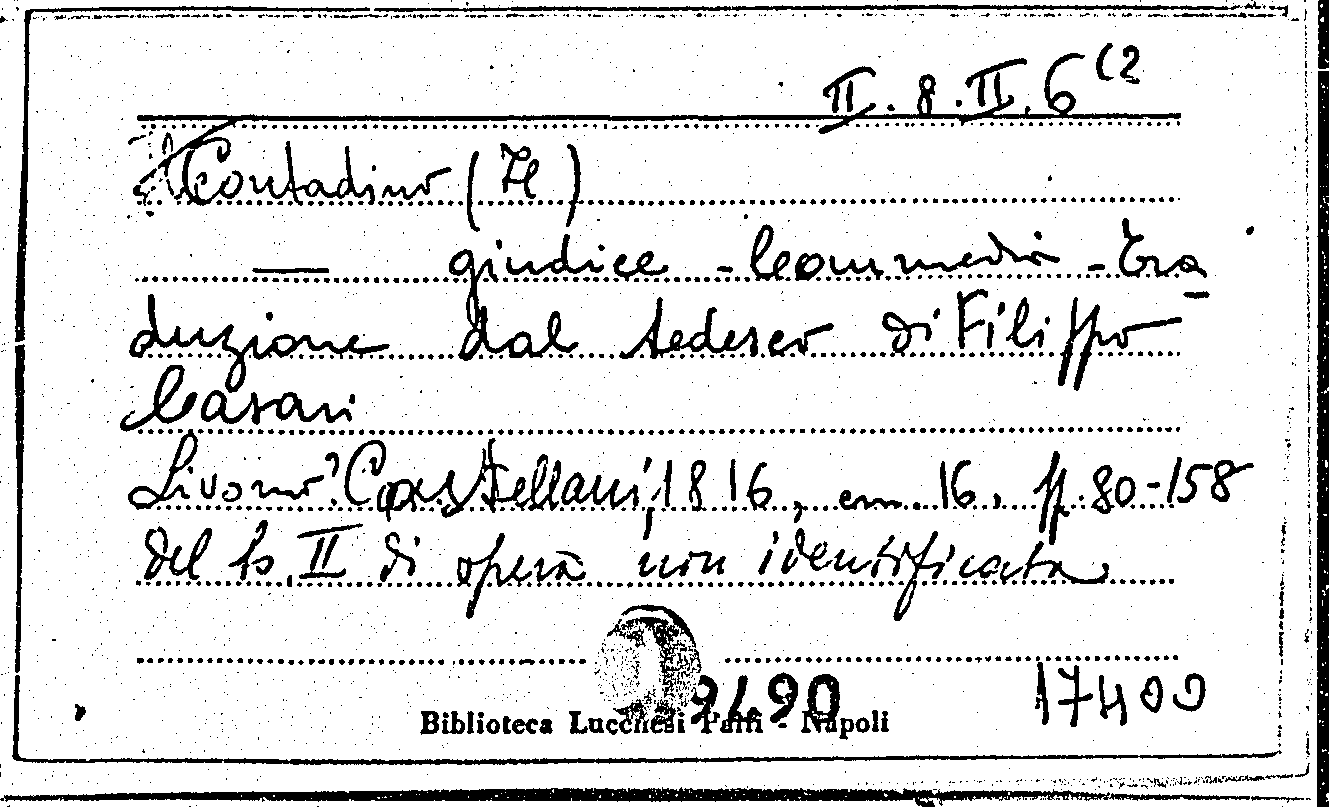 II. 8. II. 6 (2
Contadino (Il)
— giudice - Commedia - Tra
duzione dal tedesco di Filippo
Casari
Livorno? Castellani, 1816, cm. 16, pp. 80-158
del to. II di opera non identificata
9490 17409
Biblioteca Lucchesi Palli - Napoli